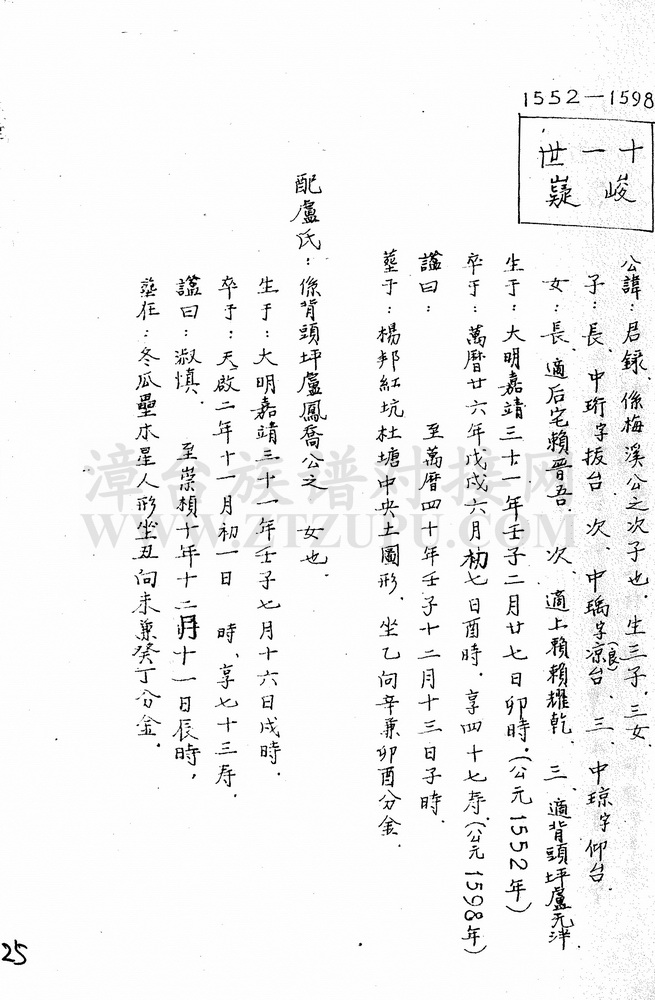 1552—1598
十一世
峻嶷
公諱：君錄、係梅溪公之次子也、生三子、三女
子：長、中珩字拔台、次、中瑀字凉(良)台、三、中琼字仰台、
女：長、適后宅賴晋吾、次、適上賴賴耀乾、三、適背頭坪盧元洋
生于：大明嘉靖三十一年壬子二月廿七日卯時、(公元1552年)
卒于：萬曆廿六年戊戌六月初七日酉時、享四十七寿、(公元1598年)
諡曰： 至萬曆四十年壬子十二月十三日子時、
葬于：楊邦紅坑杜塘中央土圖形、坐乙向辛兼卯酉分金、
配盧氏：係背頭坪盧鳳喬公之 女也、
生于：大明嘉靖三十一年壬子七月十六日戌時、
卒于：天啟二年十一月初一日 時、享七十三寿、
諡曰：淑慎、 至崇楨十年十二月十一日辰時，
葬在：冬瓜壘木星人形坐丑向未兼癸丁分金、
25
漳台族谱对接网
WWW.ZTZUPU.COM